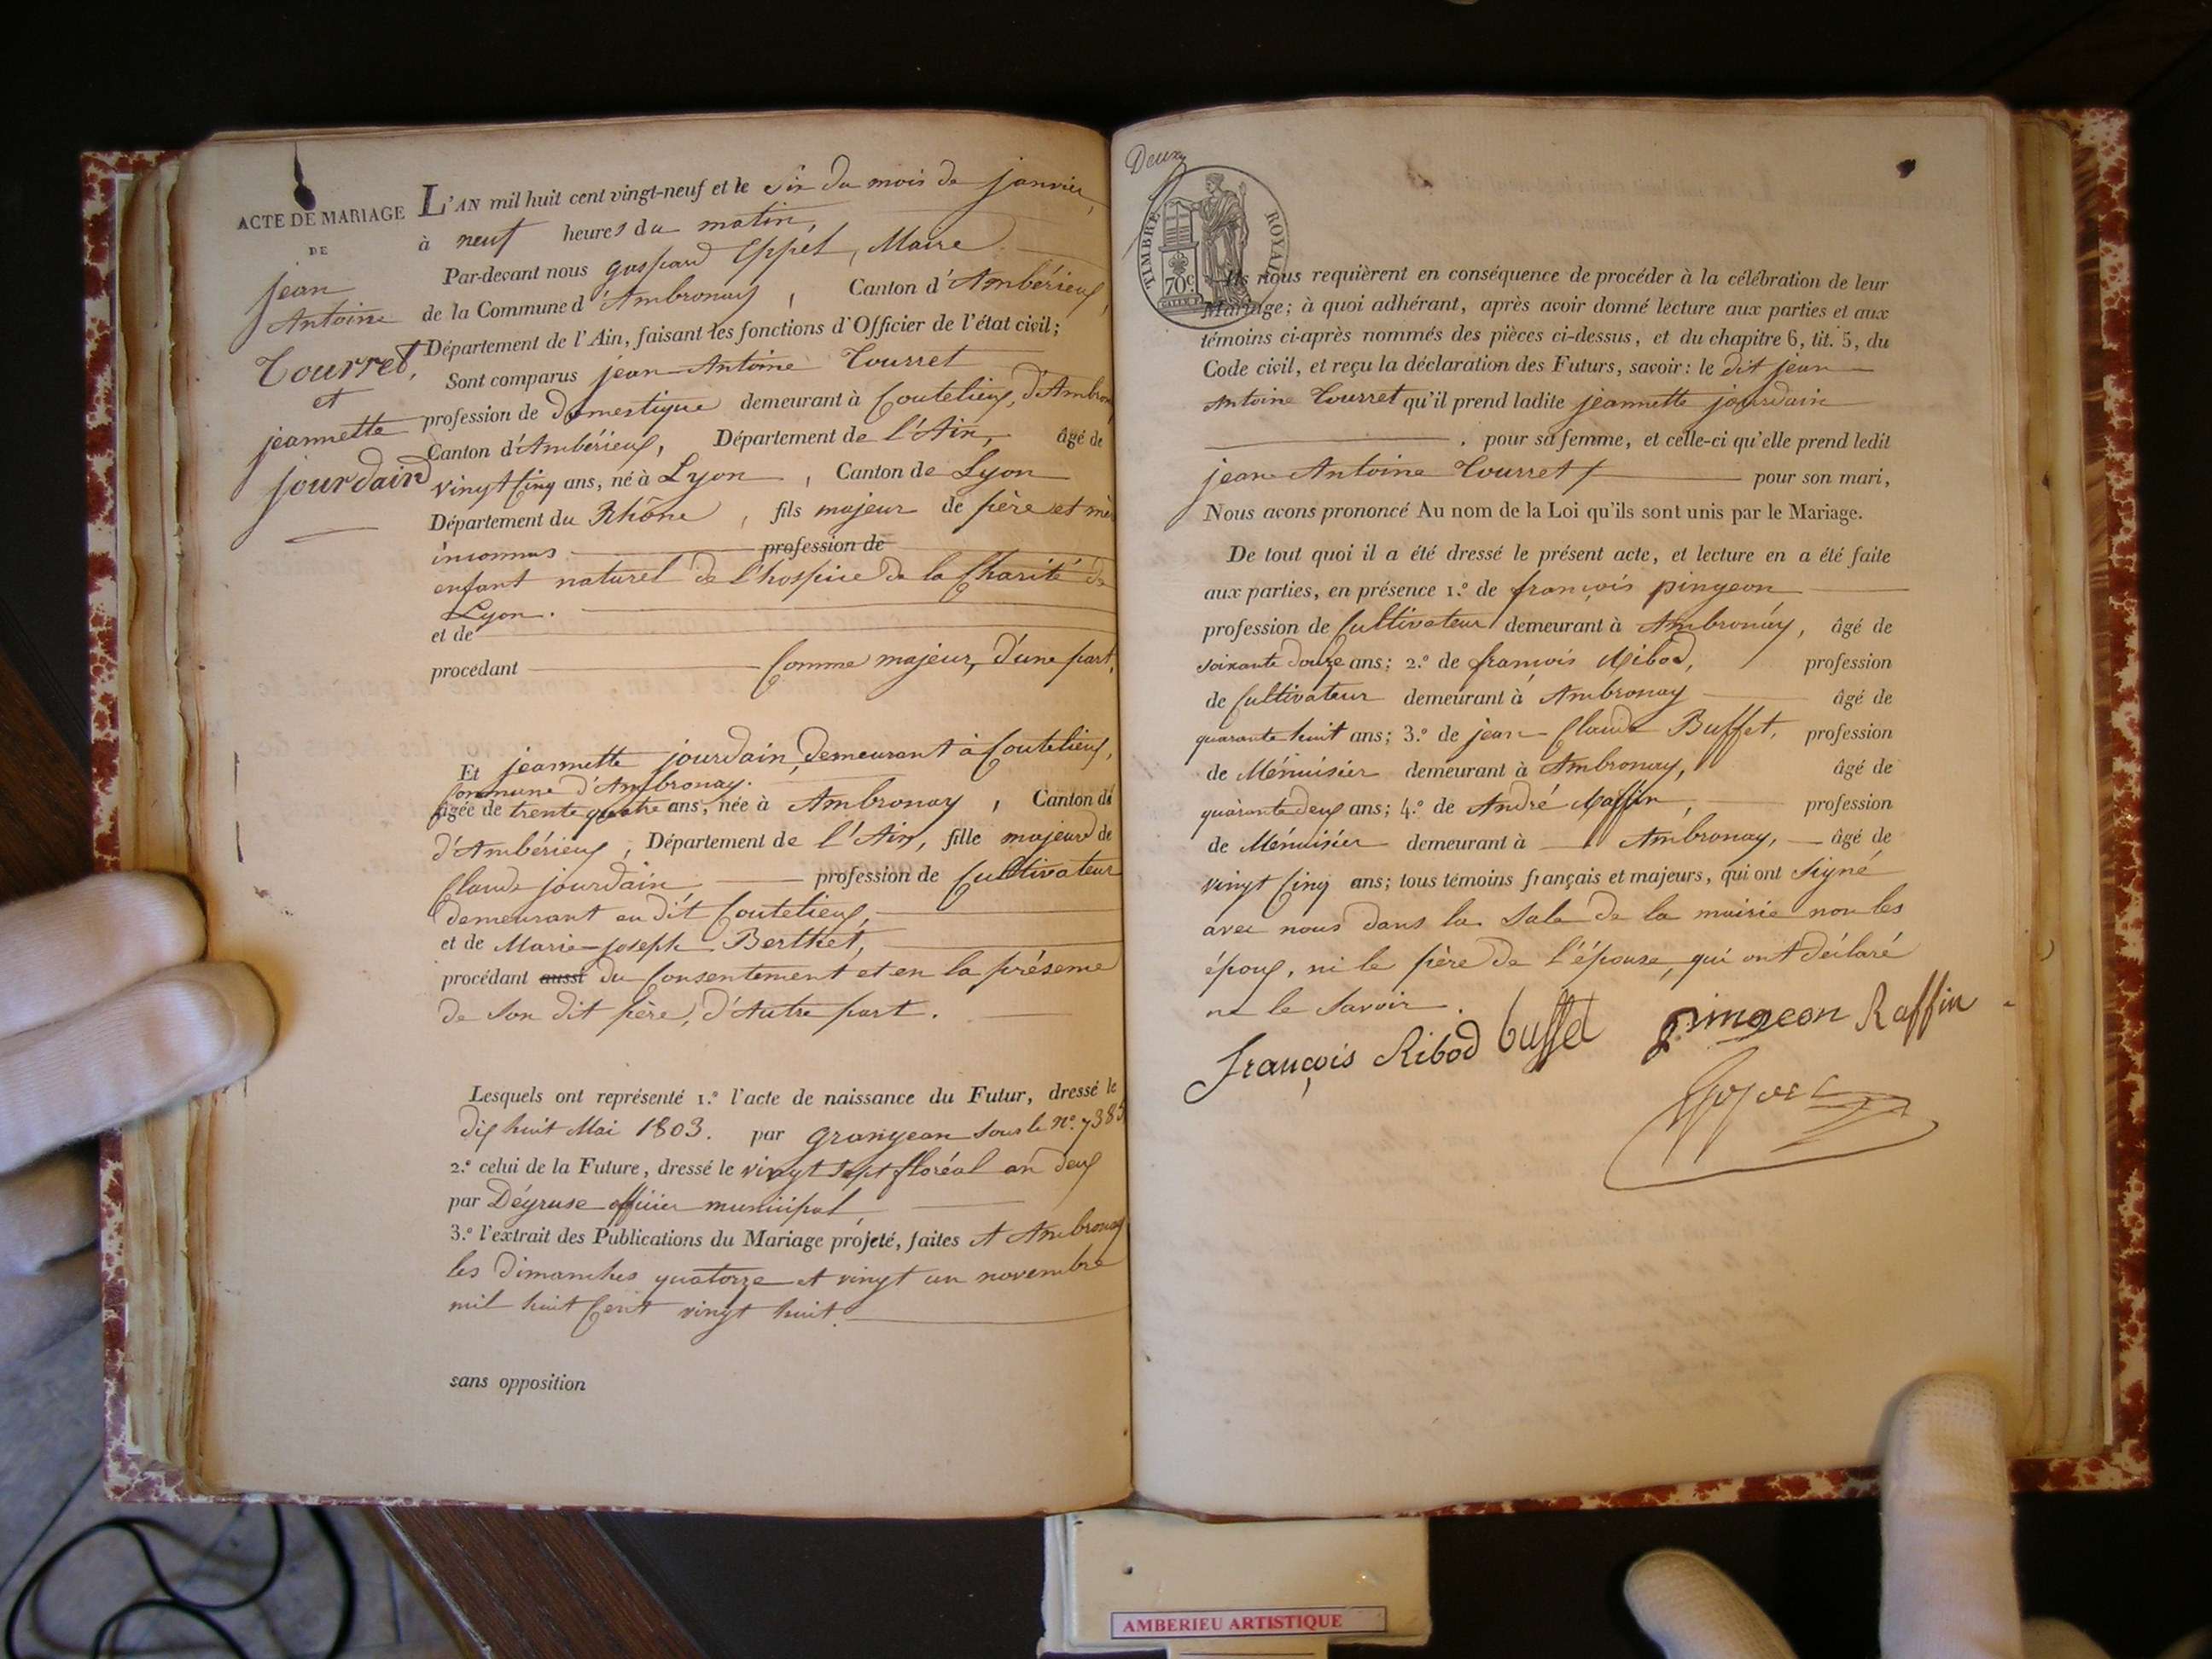 ACTE DE MARIAGE
DE
jean
Antoine
Tourret,
et
jeannette
jourdain
L'AN mil huit cent vingt-neuf et le six du mois de janvier,
à neuf heures du matin,
Par-devant nous gaspard, Maire
de la Commune d'Ambronay, Canton d'Ambérieux,
Département de l'Ain, faisant les fonctions d'Officier de l'état civil;
Sont comparus jean-Antoine Tourret
profession de domestique demeurant à Coutelieux, d'Ambronay
Canton d'Ambérieux, Département de l'Ain, âgé de
vingt cinq ans, né à Lyon, Canton de Lyon
Département du Rhône, fils majeur de père et mère
inconnus profession de
enfant naturel de l'hospice de la Charité de
Lyon.
et de
procédant Comme majeur, d'une part,
Et jeannette jourdain, demeurant à Coutelieux,
Commune d'Ambronay.
âgée de trente quatre ans, née à Ambronay, Canton de
d'Ambérieux, Département de l'Ain, fille majeure de
Claude jourdain profession de Cultivateur
demeurant au dit Coutelieux,
et de Marie-joseph Berthet,
procédant aussi du Consentement et en la présence
de son dit père, d'autre part.
Lesquels ont représenté 1.º l'acte de naissance du Futur, dressé le
dix huit Mai 1803. par granjean sous le nº. 7385
2.º celui de la Future, dressé le vingt sept floréal an deux
par Dégruse officier municipal,
3.º l'extrait des Publications du Mariage projeté, faites A Ambronay
les dimanches quatorze et vingt un novembre
mil huit Cent vingt huit.
sans opposition
Deux
TIMBRE ROYAL
70c
Ils nous requièrent en conséquence de procéder à la célébration de leur
Mariage; à quoi adhérant, après avoir donné lecture aux parties et aux
témoins ci-après nommés des pièces ci-dessus, et du chapitre 6, tit. 5, du
Code civil, et reçu la déclaration des Futurs, savoir: le dit jean
Antoine Tourret qu'il prend ladite jeannette jourdain
, pour sa femme, et celle-ci qu'elle prend ledit
jean Antoine Tourret pour son mari,
Nous avons prononcé Au nom de la Loi qu'ils sont unis par le Mariage.
De tout quoi il a été dressé le présent acte, et lecture en a été faite
aux parties, en présence 1.º de françois pingeon
profession de Cultivateur demeurant à Ambronay, âgé de
soixante douze ans; 2.º de françois Ribod, profession
de Cultivateur demeurant à Ambronay âgé de
quarante huit ans; 3.º de jean-Claude Buffet, profession
de Ménuisier demeurant à Ambronay, âgé de
quarante deux ans; 4.º de André Raffin, profession
de Ménuisier demeurant à Ambronay, âgé de
vingt Cinq ans; tous témoins français et majeurs, qui ont signé
avec nous dans la Sale de la mairie non les
époux, ni le père de l'épouse, qui ont déclaré
ne le savoir.
françois Ribod buffet pingeon Raffin
AMBERIEU ARTISTIQUE